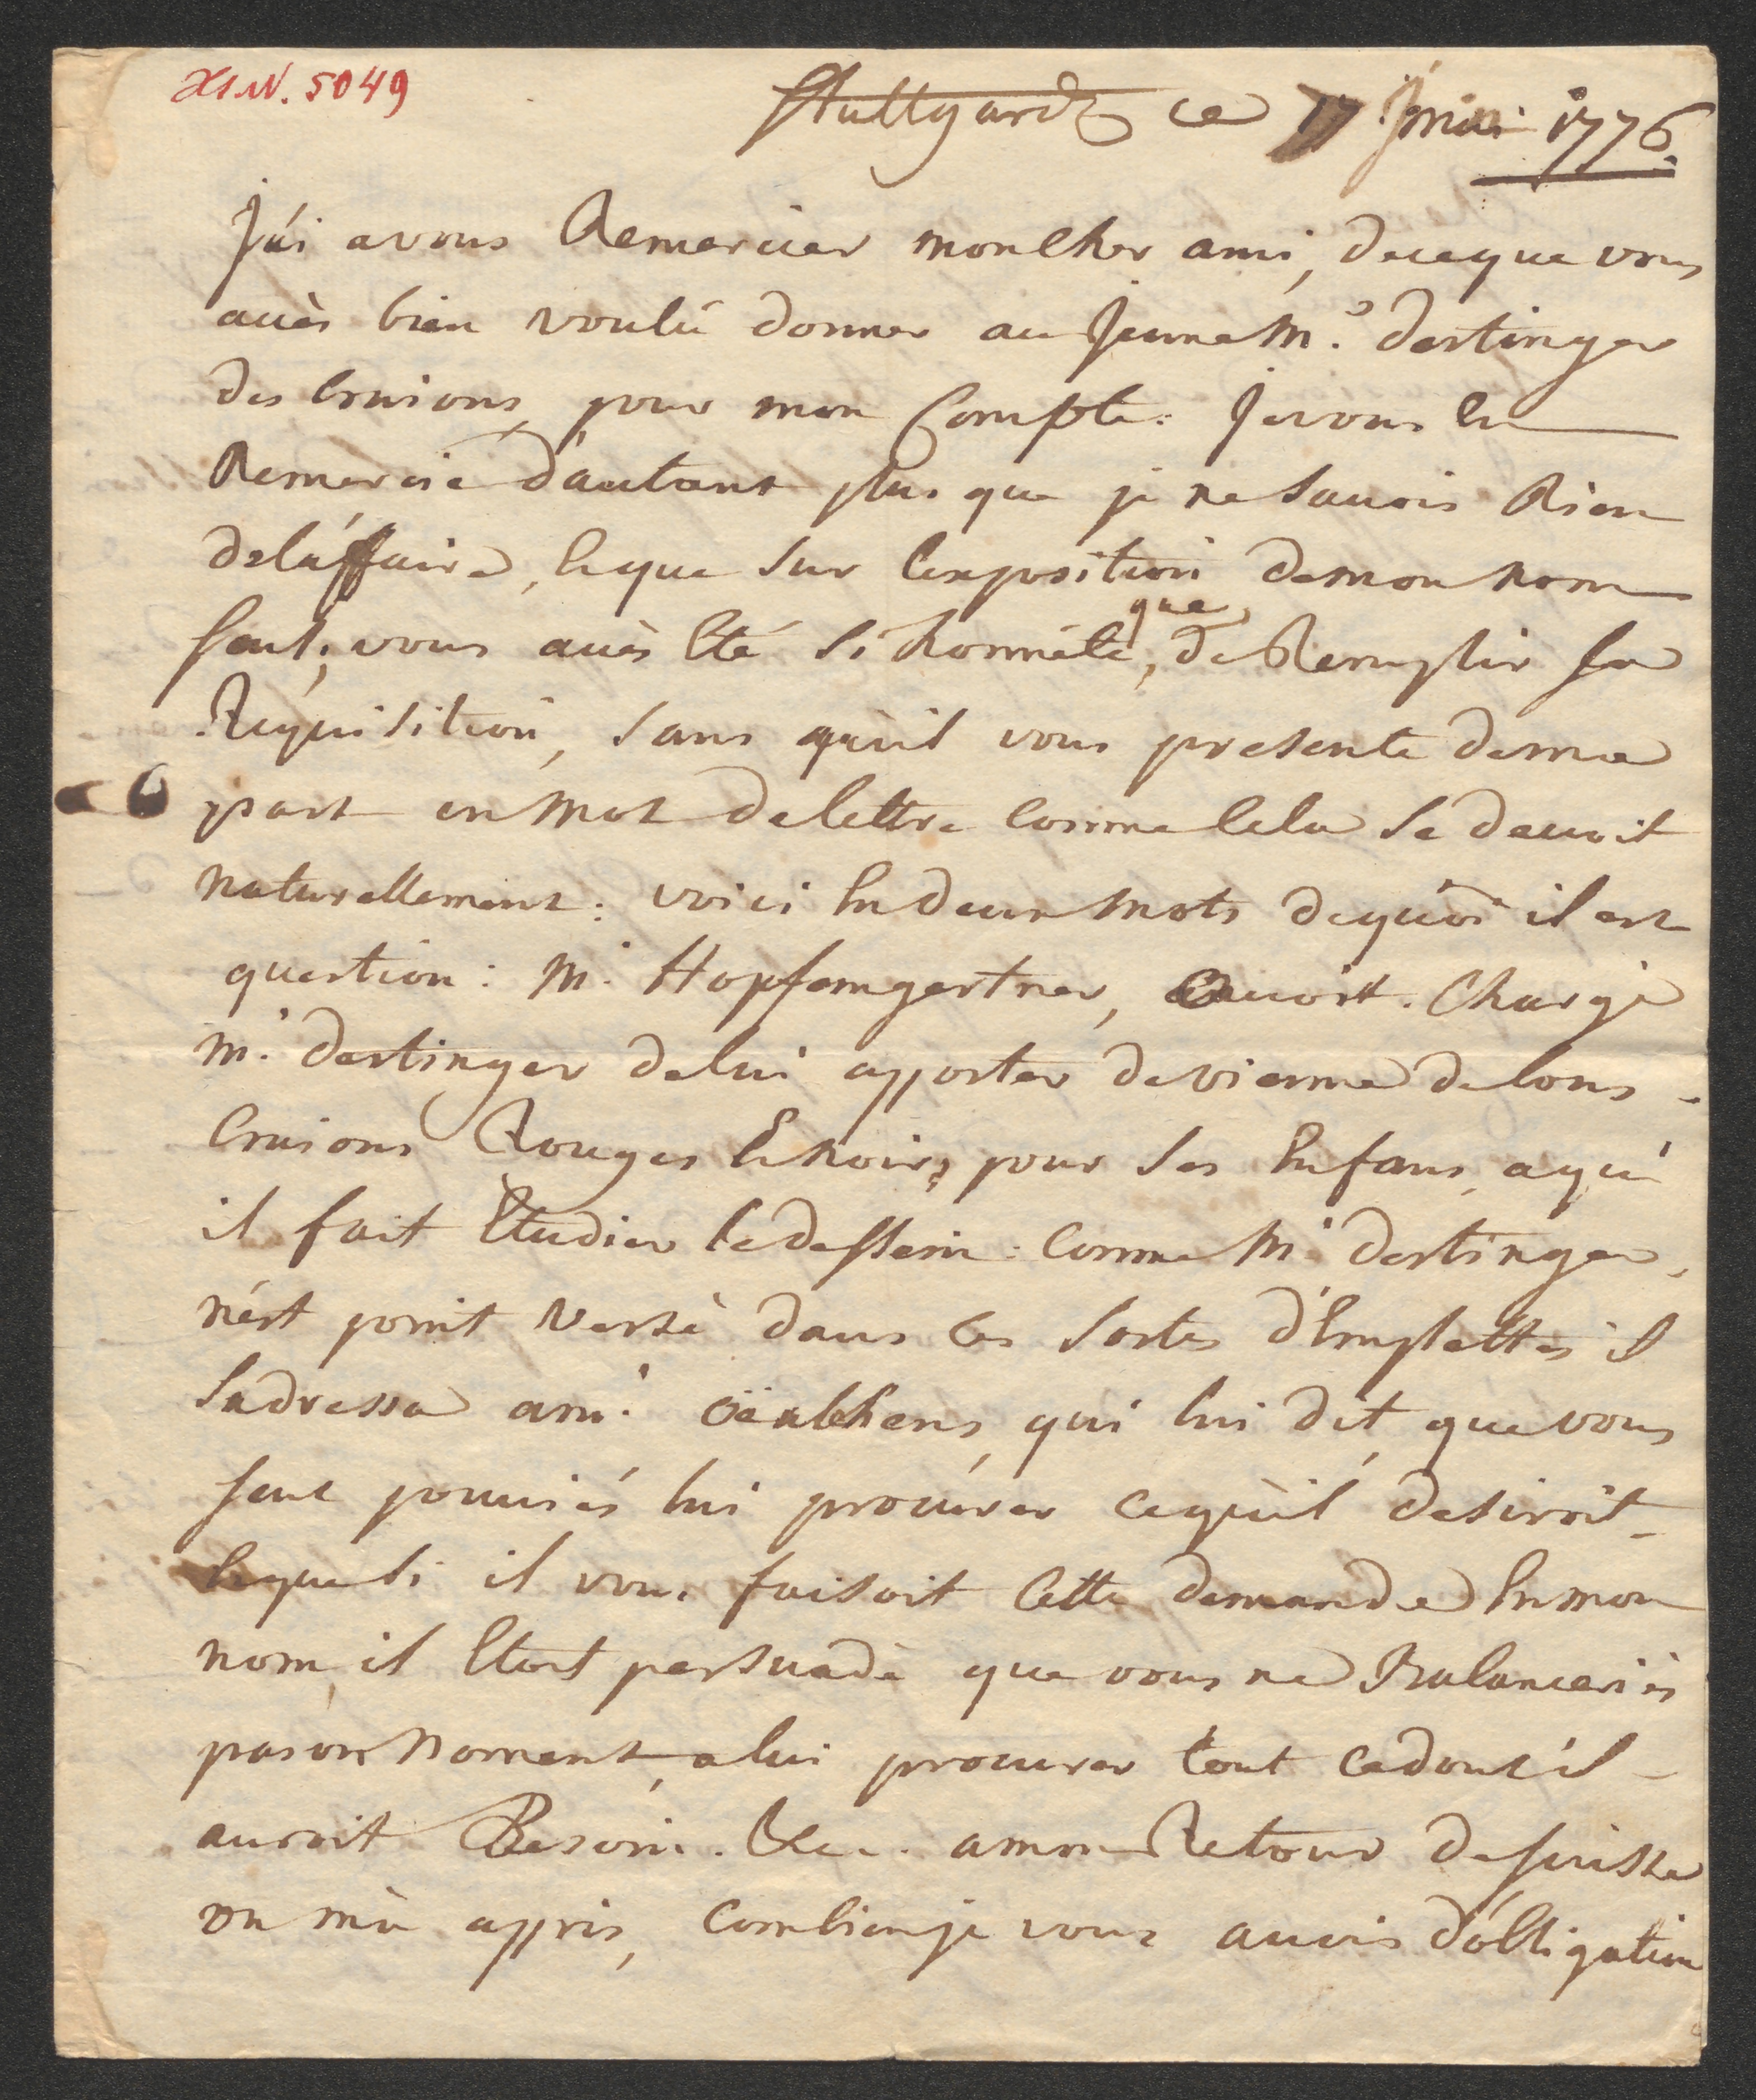 H.I.N. 5049
Stuttgardt ce 17 Juin 1776.
J'ai a vous Remercier mon cher ami, de ce que vous
avès bien voulû donner au Jeune Mr. dertinger
des Craions pour mon Compte: Je vous en
Remercie d'autant plus que je ne savois Rien
de l'affaire, Et que sur l'exposition de mon nom
seul, vous avès Eté si honnéte, que de Remplir sa
Réquisition, sans qu'il vous presente de ma
part un mot de lettre comme Cela se devoit
naturellement: voici En deux mots de quoi il est
question: Mr. Hopfemgertner, avoit Chargé
Mr. dertinger de lui apporter de vienne de bons
Craions Rouges Et noirs pour ses Enfans, a qui
il fait Etudier le dessein: comme Mr. dertinger,
n'ést point versé dans Ces sortes d'Emplettes il
s'adressa a mr. qui lui dit, que vous
seul pouviés lui procurer ce qu'il desiroit
Et que si il vous faisoit Cette demande En mon
nom, il Etoit persuadé que vous ne Balanceriés
pas un Moment, a lui procurer tout ce dont il
auroit Besoin. a mon Retour de suisse
on m'a appris, combien je vous avois d'obligation